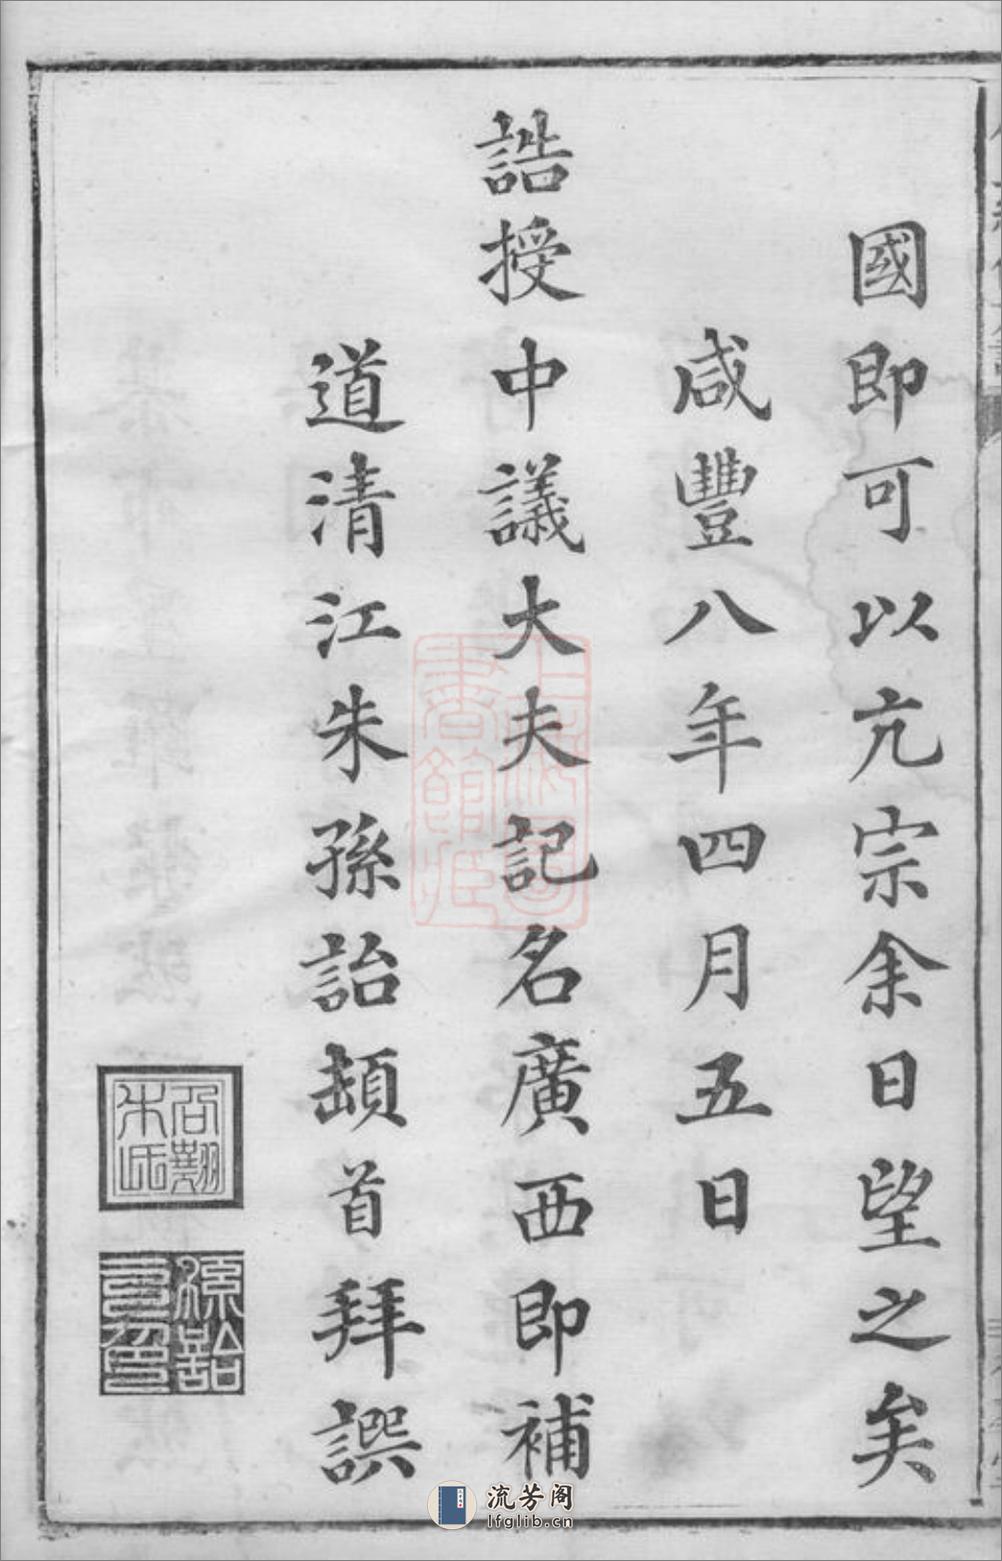 國即可以亢宗余日望之矣
咸豐八年四月五日
誥授中議大夫記名廣西即補
道清江朱孫詒頓首拜譔
流芳阁
lfglib.cn